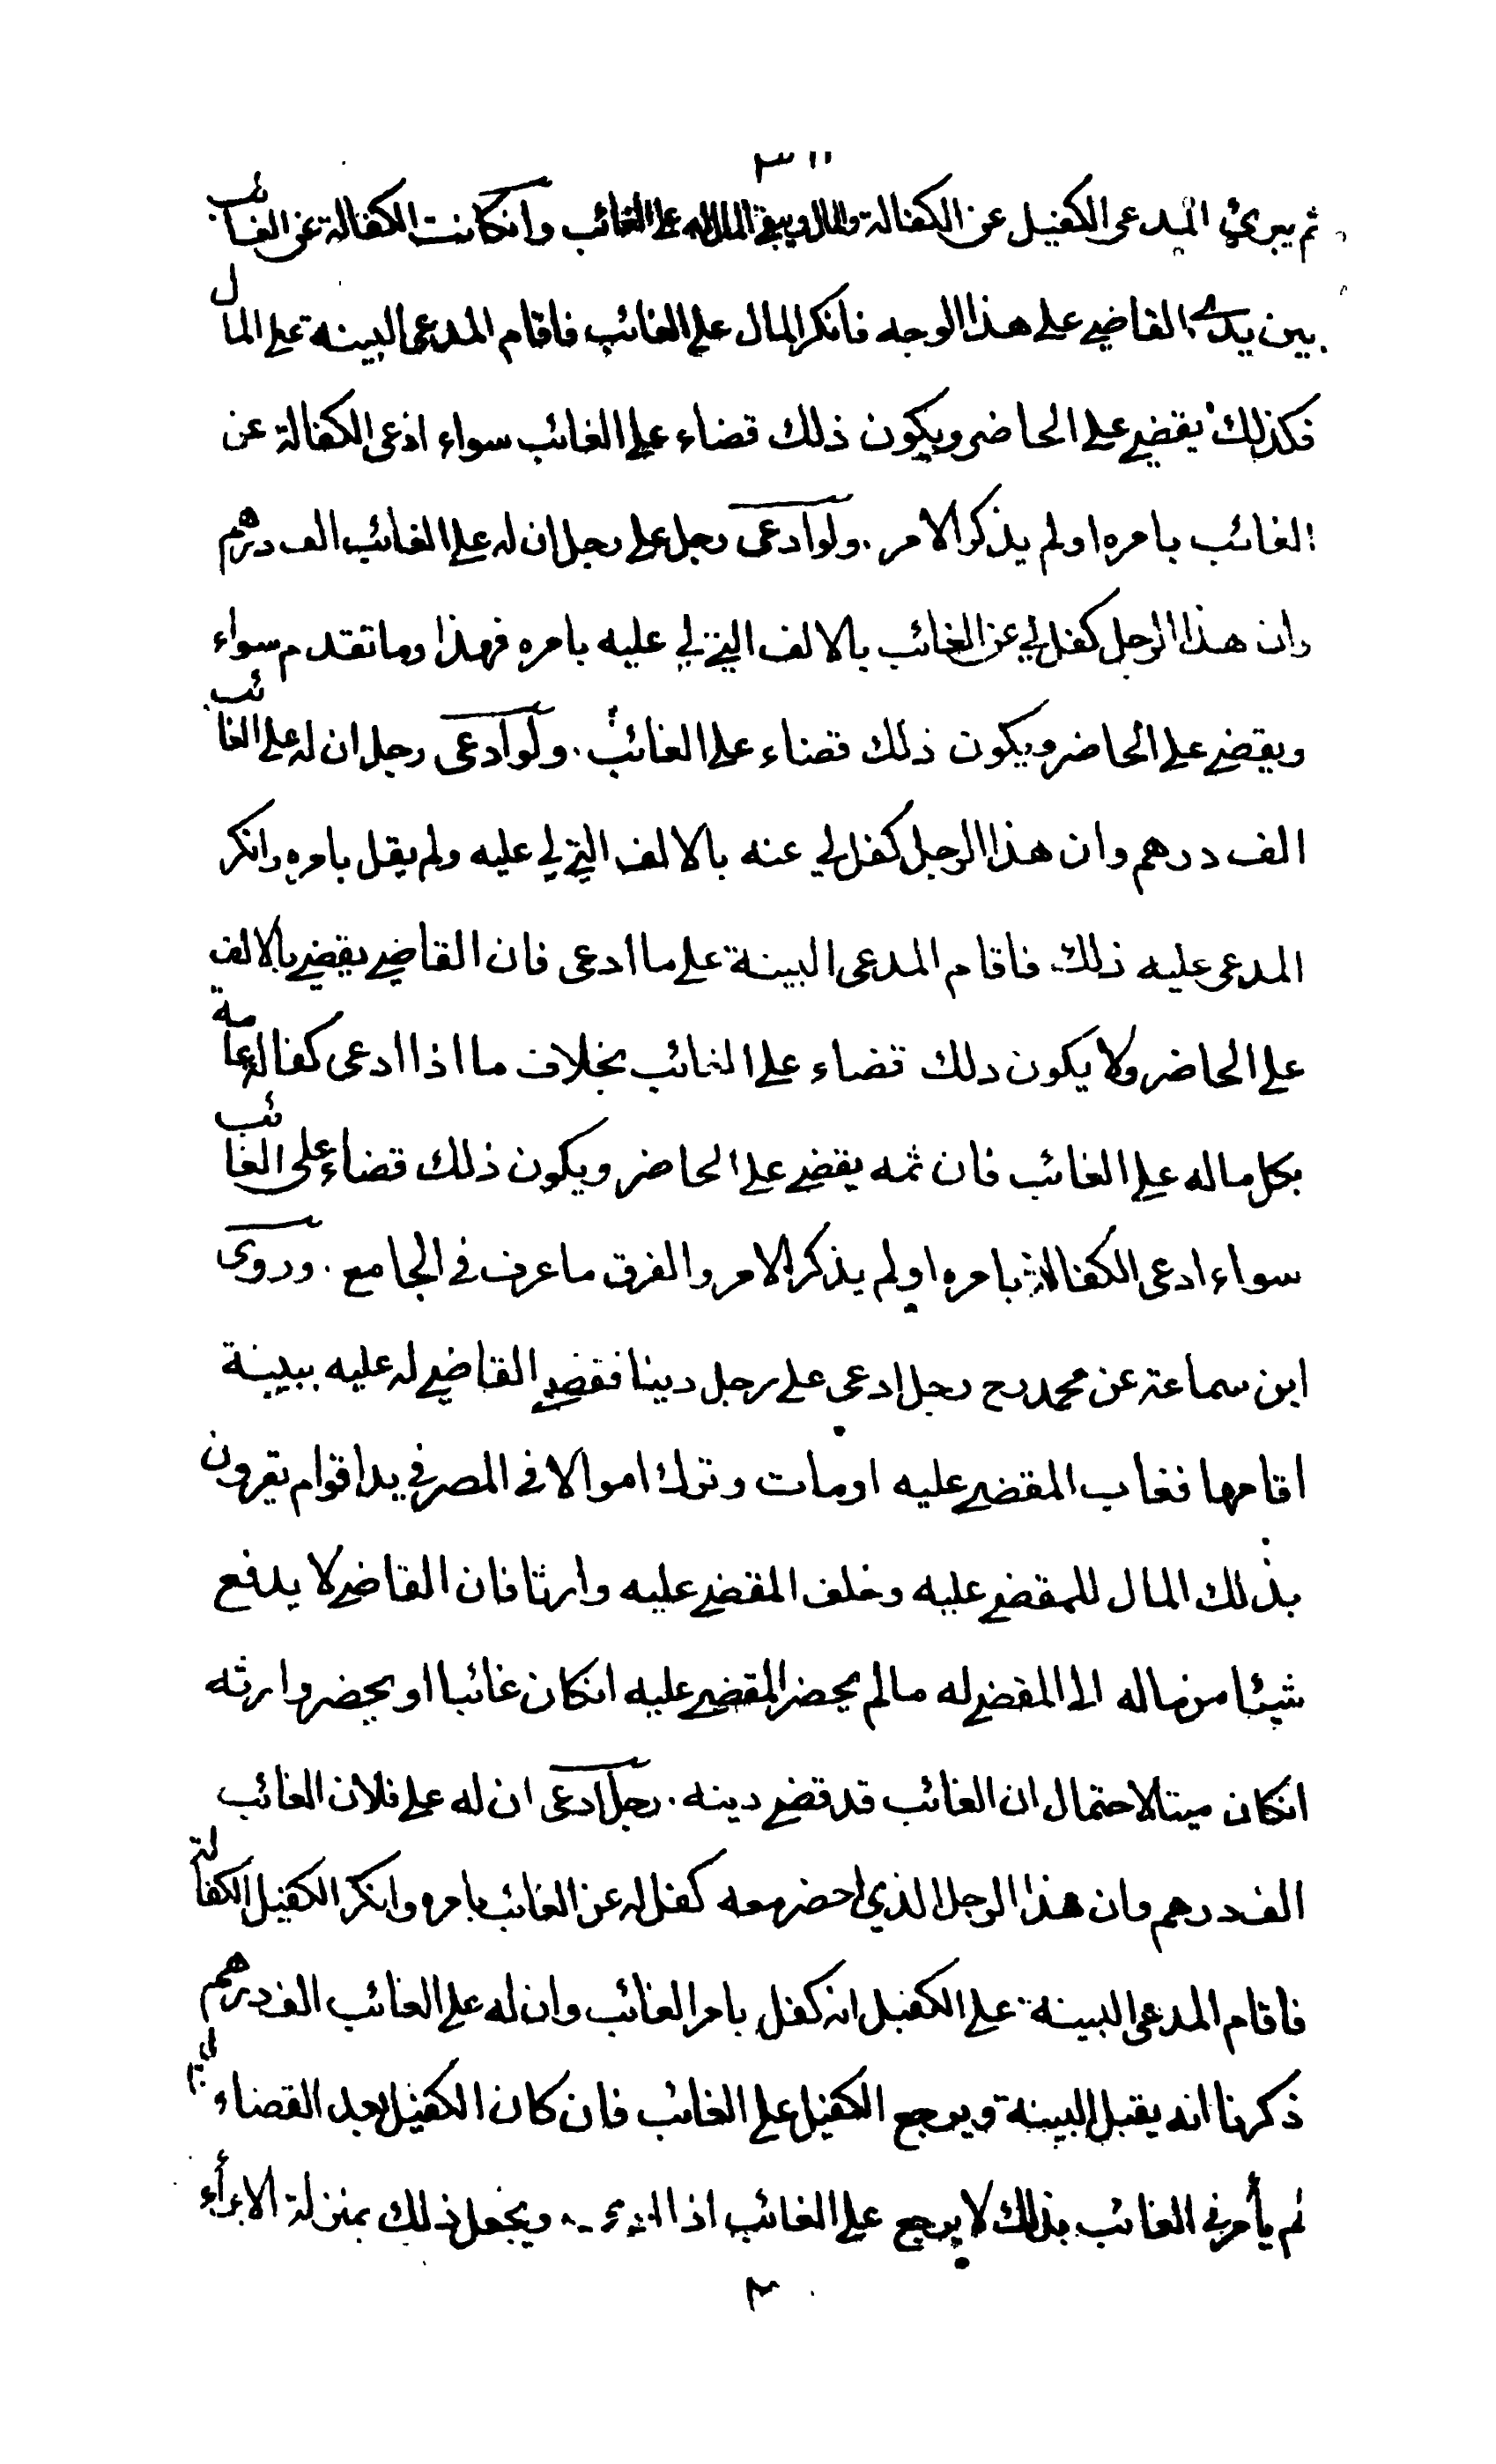 ٣١١
ثم يبرئ المدعى الكفيل عن الكفالة والمال ويبقى المال له على الغائب وانكانت الكفالة عن الغائب
بين يدى القاضي على هذا الوجه فانكر المال على الغائب فاقام المدعى البينه على المال
فكذلك يقضي على الحاضر ويكون ذلك قضاء على الغائب سواء ادعى الكفالة عن
الغائب بامره اولم يذكر الامر . ولوادعى رجل على رجل ان له على الغائب الف درهم
وان هذا الرجل كفل لي عن الغائب بالالف التي لي عليه بامره فهذا وماتقدم سواء
ويقضي على الحاضر ويكون ذلك قضاء على الغائب . ولوادعى رجل ان له على الغائب
الف درهم وان هذا الرجل كفل لي عنه بالالف التي لي عليه ولم يقل بامره وانكر
المدعى عليه ذلك فاقام المدعى البينة على ما ادعى فان القاضي يقضي بالالف
على الحاضر ولا يكون ذلك قضاء على الغائب بخلاف ما اذا ادعى كفالة عامة
بكل ماله على الغائب فان ثمه يقضي على الحاضر ويكون ذلك قضاء على الغائب
سواء ادعى الكفالة بامره اولم يذكر الامر والفرق ماعرف في الجامع . وروى
ابن سماعة عن محمد رح رجل ادعى على رجل دينا فقضى القاضي له عليه ببينة
اقامها فغاب المقضي عليه اومات وترك اموالا في المصر في يد اقوام يقرون
بذلك المال للمقضي عليه وخلف المقضي عليه وارثا فان القاضي لا يدفع
شيئا من ماله الى المقضي له مالم يحضر المقضي عليه انكان غائبا او يحضر وارثه
انكان ميتا لاحتمال ان الغائب قد قضى دينه . رجل ادعى ان له على فلان الغائب
الف درهم وان هذا الرجل الذي احضر معه كفل له عن الغائب بامره وانكر الكفيل الكفالة
فاقام المدعى البينة على الكفيل انه كفل بامر الغائب وان له على الغائب الف درهم
ذكرنا انه يقبل البينة ويرجع الكفيل على الغائب فان كان الكفيل بعد القضاء
لم يأمرني الغائب بذلك لا يرجع على الغائب اذا ويجعل ذلك بمنزلة الابراء